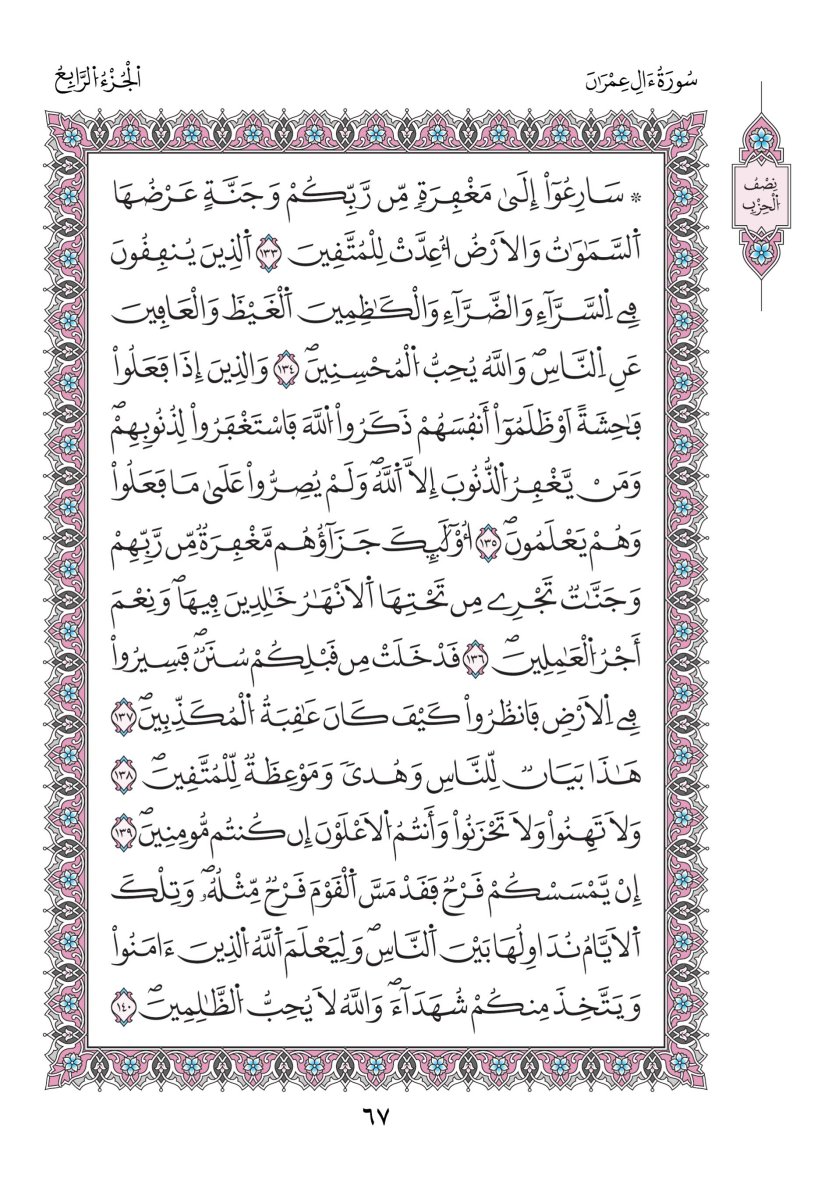 سُورَةُ ءَالِ عِمْرَانَ
اَلْجُزْءُ اَلرَّابِعُ
نِصْفُ
اَلْحِزْبِ
* سَارِعُوٓاْ إِلَىٰ مَغْفِرَةٖ مِّن رَّبِّكُمْ وَجَنَّةٍ عَرْضُهَا
اَ۬لسَّمَٰوَٰتُ وَالَارْضُ أُعِدَّتْ لِلْمُتَّفِينَ ١٣٣ اَ۬لذِينَ يُنفِفُونَ
فِے اِ۬لسَّرَّآءِ وَالضَّرَّآءِ وَالْكَٰظِمِينَ اَ۬لْغَيْظَ وَالْعَافِينَ
عَنِ اِ۬لنَّاسِۖ وَاللَّهُ يُحِبُّ اُ۬لْمُحْسِنِينَۖ ١٣٤ وَالذِينَ إِذَا فَعَلُواْ
فَٰحِشَةً اَوْ ظَلَمُوٓاْ أَنفُسَهُمْ ذَكَرُواْ اُ۬للَّهَ فَاسْتَغْفَرُواْ لِذُنُوبِهِمْۖ
وَمَنْ يَّغْفِرُ اُ۬لذُّنُوبَ إِلَّا اَ۬للَّهُۖ وَلَمْ يُصِرُّواْ عَلَىٰ مَا فَعَلُواْ
وَهُمْ يَعْلَمُونَۖ ١٣٥ أُوْلَٰٓئِكَ جَزَآؤُهُم مَّغْفِرَةٞ مِّن رَّبِّهِمْ
وَجَنَّٰتٞ تَجْرِے مِن تَحْتِهَا اَ۬لَانْهَٰرُ خَٰلِدِينَ فِيهَاۖ وَنِعْمَ
أَجْرُ اُ۬لْعَٰمِلِينَۖ ١٣٦ فَدْ خَلَتْ مِن فَبْلِكُمْ سُنَنٞۖ فَسِيرُواْ
فِے اِ۬لَارْضِ فَانظُرُواْ كَيْفَ كَانَ عَٰفِبَةُ اُ۬لْمُكَذِّبِينَۖ ١٣٧
هَٰذَا بَيَانٞ لِّلنَّاسِ وَهُدىٗ وَمَوْعِظَةٞ لِّلْمُتَّفِينَۖ ١٣٨
وَلَا تَهِنُواْ وَلَا تَحْزَنُواْ وَأَنتُمُ اُ۬لَاعْلَوْنَ إِن كُنتُم مُّومِنِينَۖ ١٣٩
إِنْ يَّمْسَسْكُمْ فَرْحٞ فَفَدْ مَسَّ اَ۬لْفَوْمَ فَرْحٞ مِّثْلُهُۥۖ وَتِلْكَ
اَ۬لَايَّامُ نُدَاوِلُهَا بَيْنَ اَ۬لنَّاسِۖ وَلِيَعْلَمَ اَ۬للَّهُ اُ۬لذِينَ ءَامَنُواْ
وَيَتَّخِذَ مِنكُمْ شُهَدَآءَۖ وَاللَّهُ لَا يُحِبُّ اُ۬لظَّٰلِمِينَۖ ١٤٠
٦٧